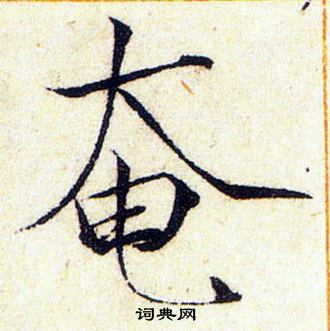 奄
词典网